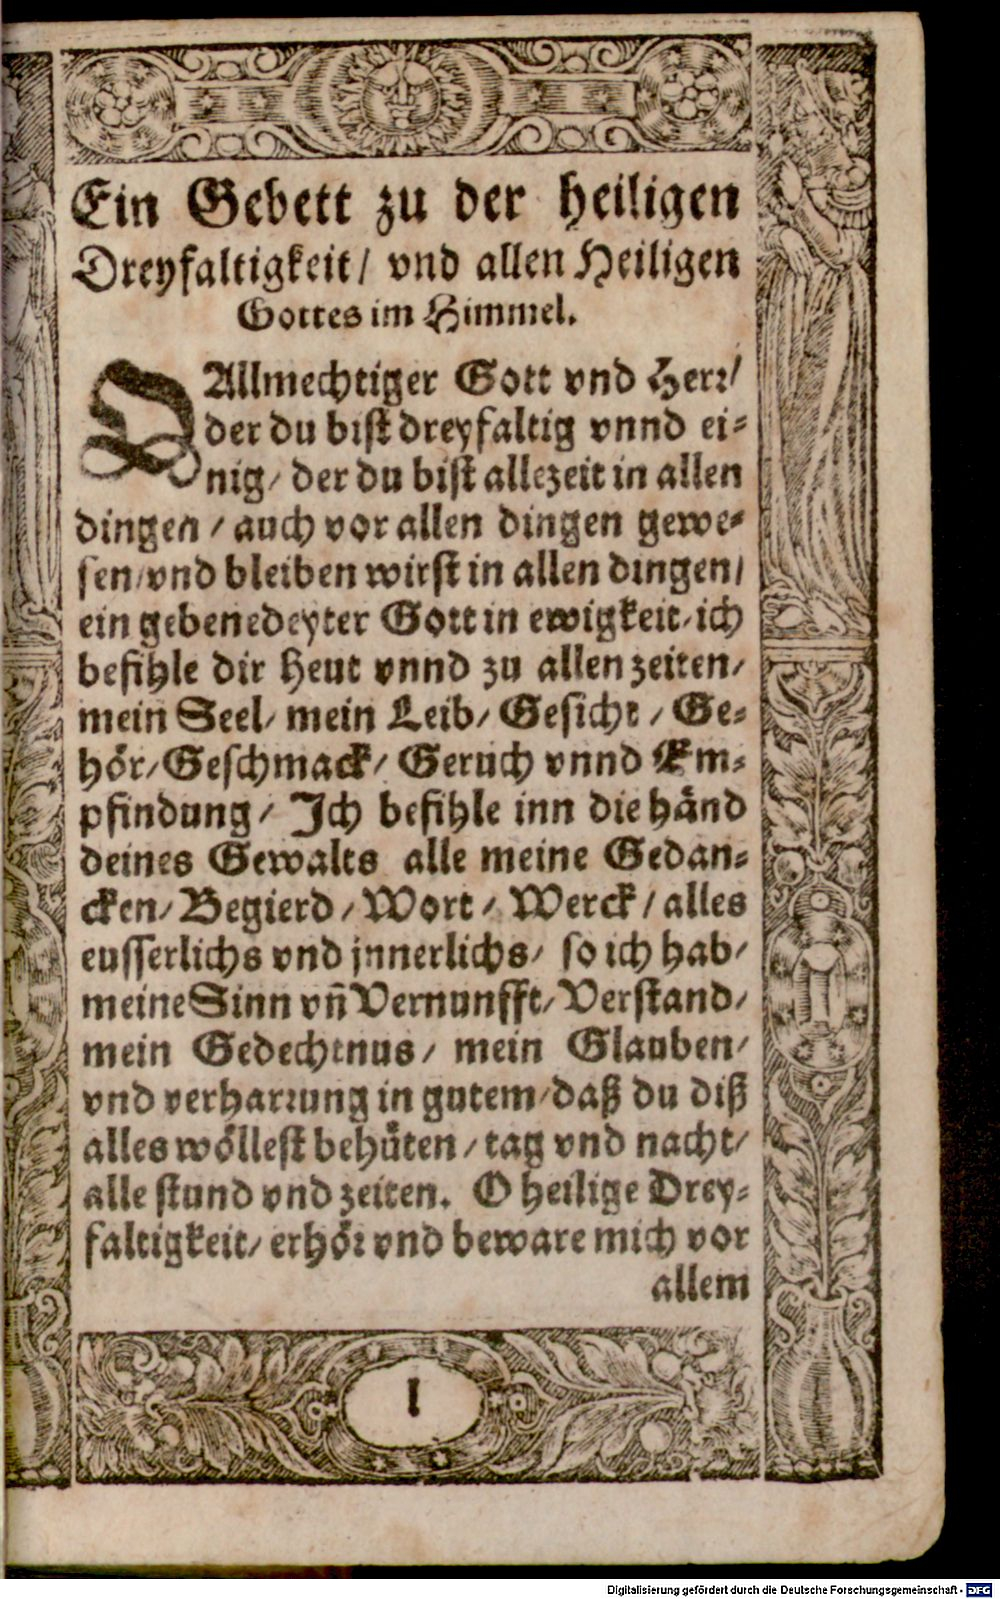 Ein Gebett zu der heiligen
Dreyfaltigkeit/ vnd allen Heiligen
Gottes im Himmel.
O Allmechtiger Gott vnd Herr/
der du bist dreyfaltig vnnd ei-
nig/ der du bist allezeit in allen
dingen/ auch vor allen dingen gewe-
sen/ vnd bleiben wirst in allen dingen/
ein gebenedeyter Gott in ewigkeit/ ich
befihle dir heut vnnd zu allen zeiten/
mein Seel/ mein Leib/ Gesicht/ Ge-
hör/ Geschmack/ Geruch vnnd Em-
pfindung/ Ich befihle inn die händ
deines Gewalts alle meine Gedan-
cken/ Begierd/ Wort/ Werck/ alles
eusserlichs vnd jnnerlichs/ so ich hab/
meine Sinn vñ Vernunfft/ Verstand/
mein Gedechtnus/ mein Glauben/
vnd verharrung in gutem/ daß du diß
alles wöllest behüten/ tag vnd nacht/
alle stund vnd zeiten. O heilige Drey-
faltigkeit/ erhör vnd beware mich vor
allem
1
Digitalisierung gefördert durch die Deutsche Forschungsgemeinschaft - DFG